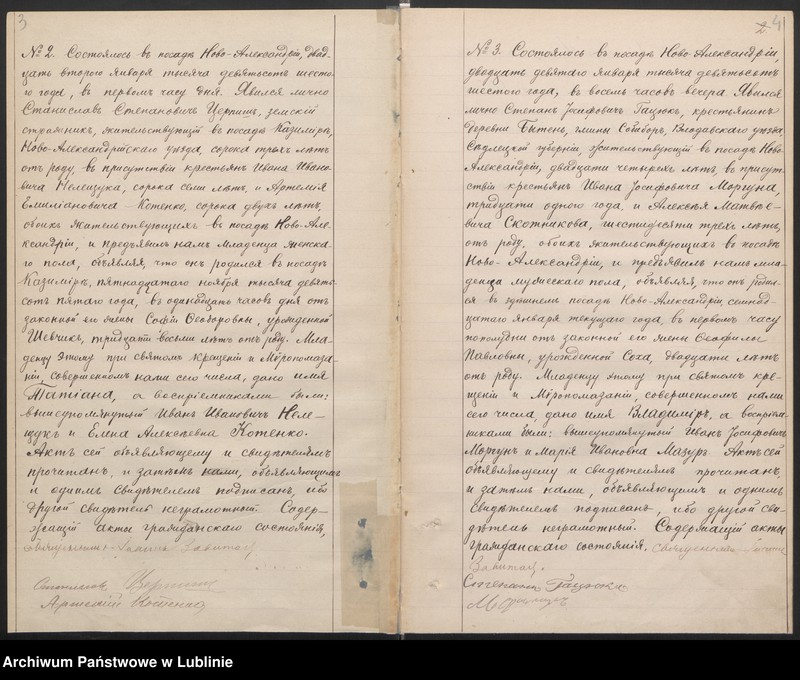 3
№ 2. Состоялось въ посадѣ Ново-Александріи, двад-
цать второго Января тысяча девятьсотъ шесто-
го года, въ первомъ часу дня. Явился лично
Станиславъ Степановичъ земскій
стражникъ, жительствующій въ посадѣ Казимиръ,
Ново-Александрійскаго уѣзда, сорока трехъ лѣтъ
отъ роду, въ присутствіи крестьянъ Ивана Ивано-
вича Нелещука, сорока семи лѣтъ, и Артемія
Емиліановича Котенко, сорока двухъ лѣтъ,
обоихъ жительствующихъ въ посадѣ Ново-Але-
ксандріи, и предъявилъ намъ младенца женска-
го пола, объявляя, что онъ родился въ посадѣ
Казимірѣ, пятнадцатаго ноября тысяча девять-
сотъ пятаго года, въ одинадцать часовъ дня отъ
законной его жены Софіи Ѳеодоровны, урожденной
Шевчикъ, тридцати восьми лѣтъ отъ роду. Мла-
денцу этому при святомъ крещеніи и Мѵропомаза-
ніи, совершенномъ нами сего числа, дано имя
Татіана, а воспріемниками были:
вышеупомянутый Иванъ Ивановичъ Неле-
щукъ и Елена Алексѣевна Котенко.
Актъ сей объявляющему и свидѣтелямъ
прочитанъ, и затѣмъ нами, объявляющимъ
и однимъ свидѣтелемъ подписанъ, ибо
другой свидѣтель неграмотный. Содер-
жащій акты гражданскаго состоянія,
Священникъ
Станиславъ
Артемій Котенко
4
№ 3. Состоялось въ посадѣ Ново-Александріи,
двадцать девятаго Января тысяча девятьсотъ
шестого года, въ восемь часовъ вечера. Явился
лично Степанъ Іосифовичъ Гацюкъ, крестьянинъ
деревни Бытень, гмины Собиборъ, Влодавскаго уѣзда,
Сѣдлецкой губерніи, жительствующій въ посадѣ Ново-
Александріи, двадцати четырехъ лѣтъ, въ присут-
ствіи крестьянъ Ивана Іосифовича Моргуна,
тридцати одного года, и Алексѣя Матвѣе-
вича Скотникова, шестидесяти трехъ лѣтъ,
отъ роду, обоихъ жительствующихъ въ посадѣ
Ново-Александріи, и предъявилъ намъ мла-
денца мужескаго пола, объявляя, что онъ родил-
ся въ здѣшнемъ посадѣ Ново-Александріи, семнад-
цатаго января текущаго года, въ первомъ часу
пополудни отъ законной его жены Ѳеофилы
Павловны, урожденной Соха, двадцати лѣтъ
отъ роду. Младенцу этому при святомъ кре-
щеніи и Мѵропомазаніи, совершенномъ нами
сего числа, дано имя Владиміръ, а воспріем-
никами были: вышеупомянутый Иванъ Іосифовичъ
Моргунъ и Марія Ивановна Мазуръ. Актъ сей
объявляющему и свидѣтелямъ прочитанъ,
и затѣмъ нами, объявляющимъ и однимъ
свидѣтелемъ подписанъ, ибо другой сви-
дѣтель неграмотный. Содержащій акты
гражданскаго состоянія. Священникъ
Степанъ Гацюкъ
Archiwum Państwowe w Lublinie